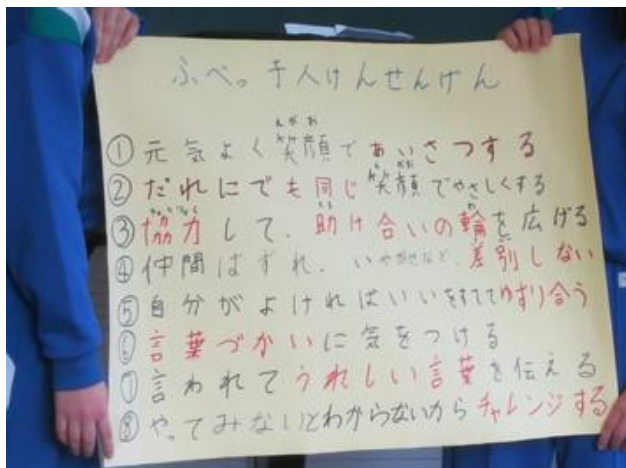 ふべっ子人けんせんげん
①元気よく笑顔であいさつする
②だれにでも同じ笑顔でやさしくする
③協力して、助け合いの輪を広げる
④仲間はずれ、いやがせなど、差別しない
⑤自分がよければいいをすててゆずり合う
⑥言葉づかいに気をつける
⑦言われてうれしい言葉を伝える
⑧やってみないとわからないからチャレンジする